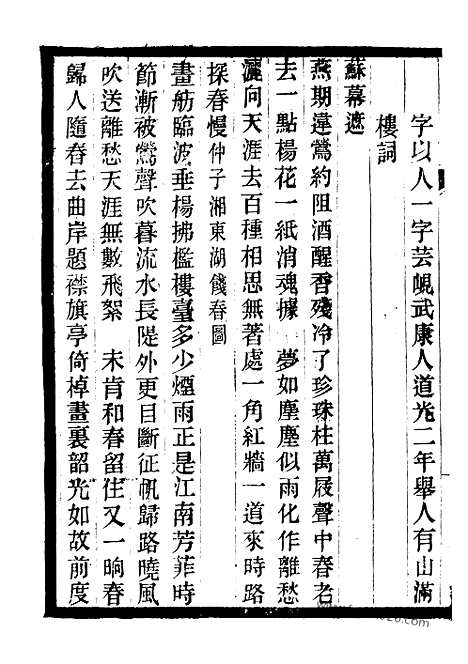 字以人一字芸峴武康人道光二年舉人有山滿
樓詞
蘇幕遮
燕期違鶯約阻酒醒香殘冷了珍珠柱萬屐聲中春老
去一點楊花一紙消魂據　夢如塵塵似雨化作離愁
灑向天涯去百種相思無著處一角紅牆一道來時路
探春慢仲子湘東湖餞春圖
畫舫臨波垂楊拂檻樓臺多少煙雨正是江南芳菲時
節漸被鶯聲吹暮流水長隄外更目斷征帆歸路曉風
吹送離愁天涯無數飛絮　未肯和春留住又一晌春
歸人隨春去曲岸題襟旗亭倚棹畫裏韶光如故前度